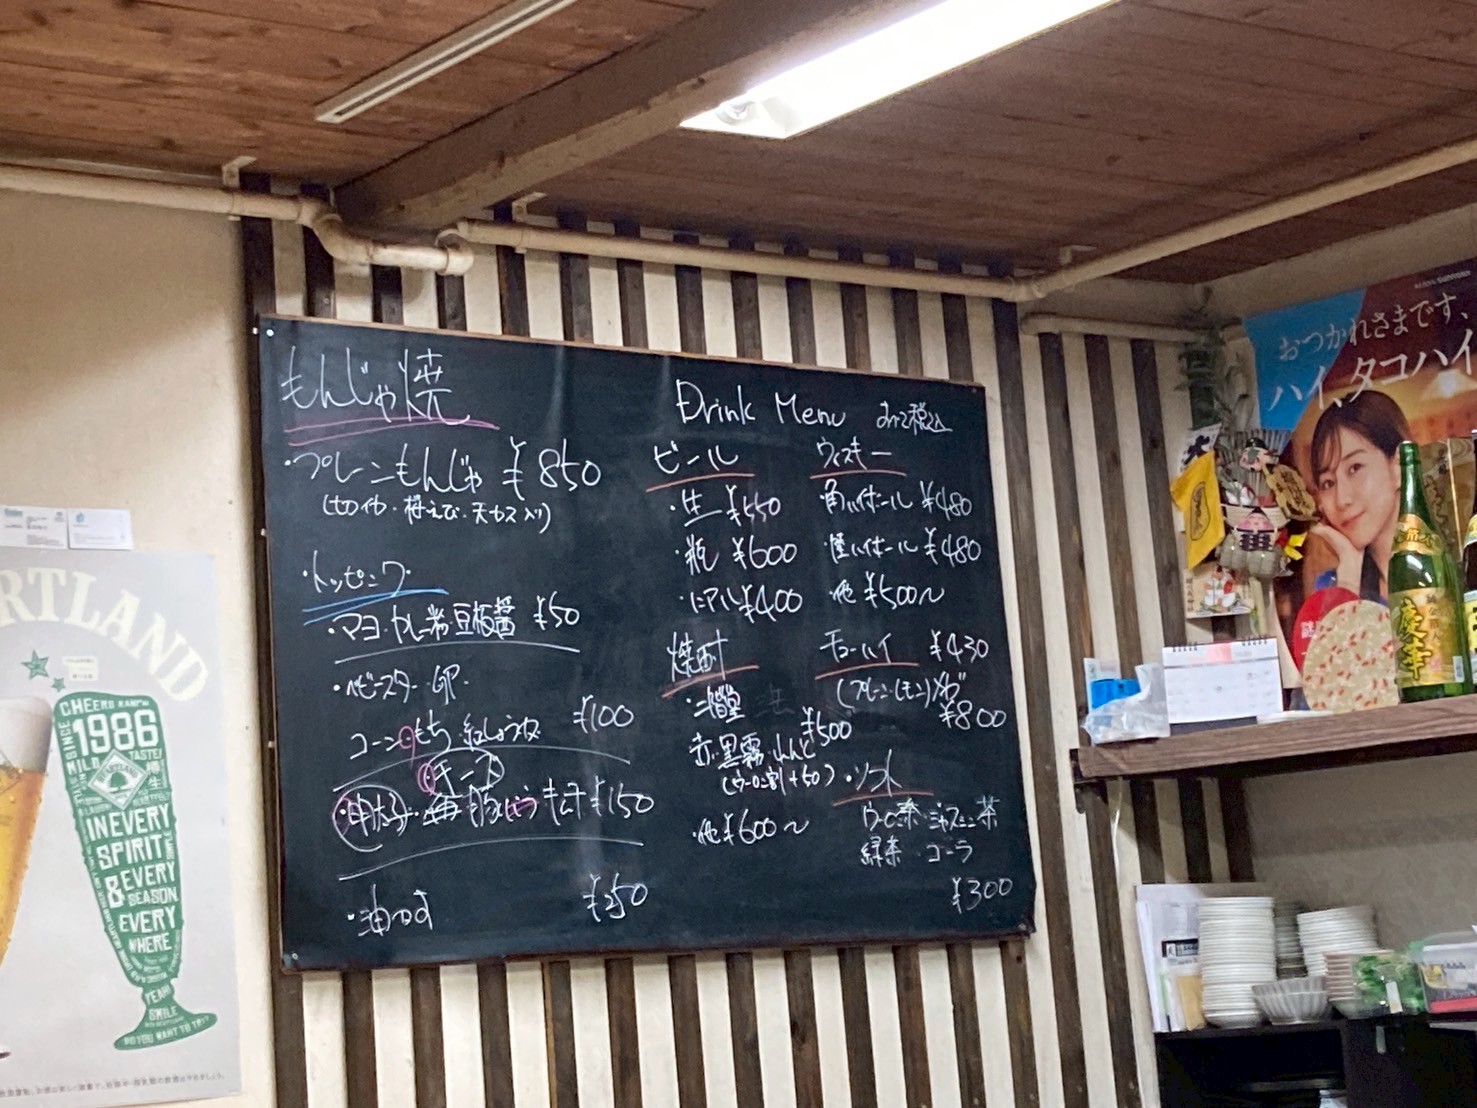 もんじゃ焼
・プレーンもんじゃ ¥850
(切イカ・桜えび・天カス入り)
・トッピング・
・マヨ・カレー粉・豆板醤 ¥50
・ベビースター・卵・
コーン・もち・紅しょうが ¥100
チーズ
・明太子・豚・キムチ ¥150
・油かす ¥250
Drink Menu すべて税込
ビール
・生 ¥550
・瓶 ¥600
・ノンアル ¥400
焼酎
・二階堂
¥500
赤・黒霧・れんと
(ウーロン割+50)
・他 ¥600〜
ウィスキー
・角ハイボール ¥480
・ハイボール ¥480
・他 ¥500〜
チューハイ ¥430
(プレーン・レモン)
¥800
・ソフト
ウーロン茶・ジャスミン茶
緑茶 コーラ
¥300
おつかれさまです、
ハイ、タコハイ
慶幸
RTLAND
CHEERS
SINCE
1986
MILD
TASTE!
HEARTLAND
IN EVERY
SPIRIT
& EVERY
SEASON
EVERY
WHERE
YEAH
SMILE
DO YOU WANT TO TRY?